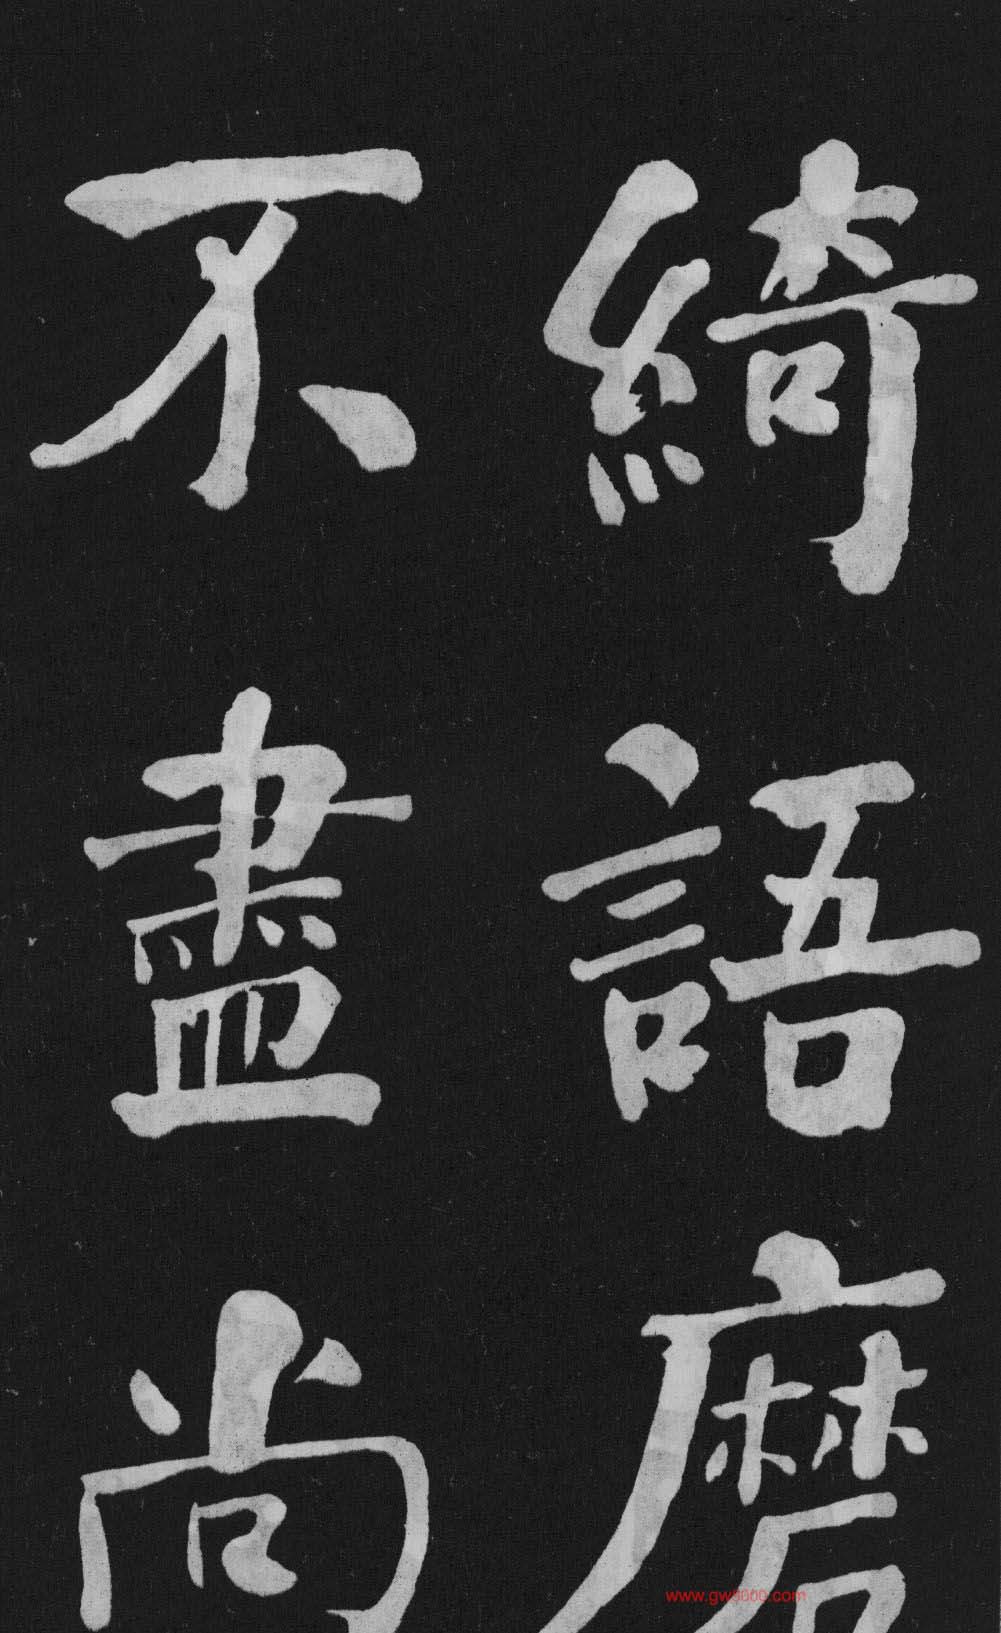 綺語磨
不盡尚
www.gw8000.com